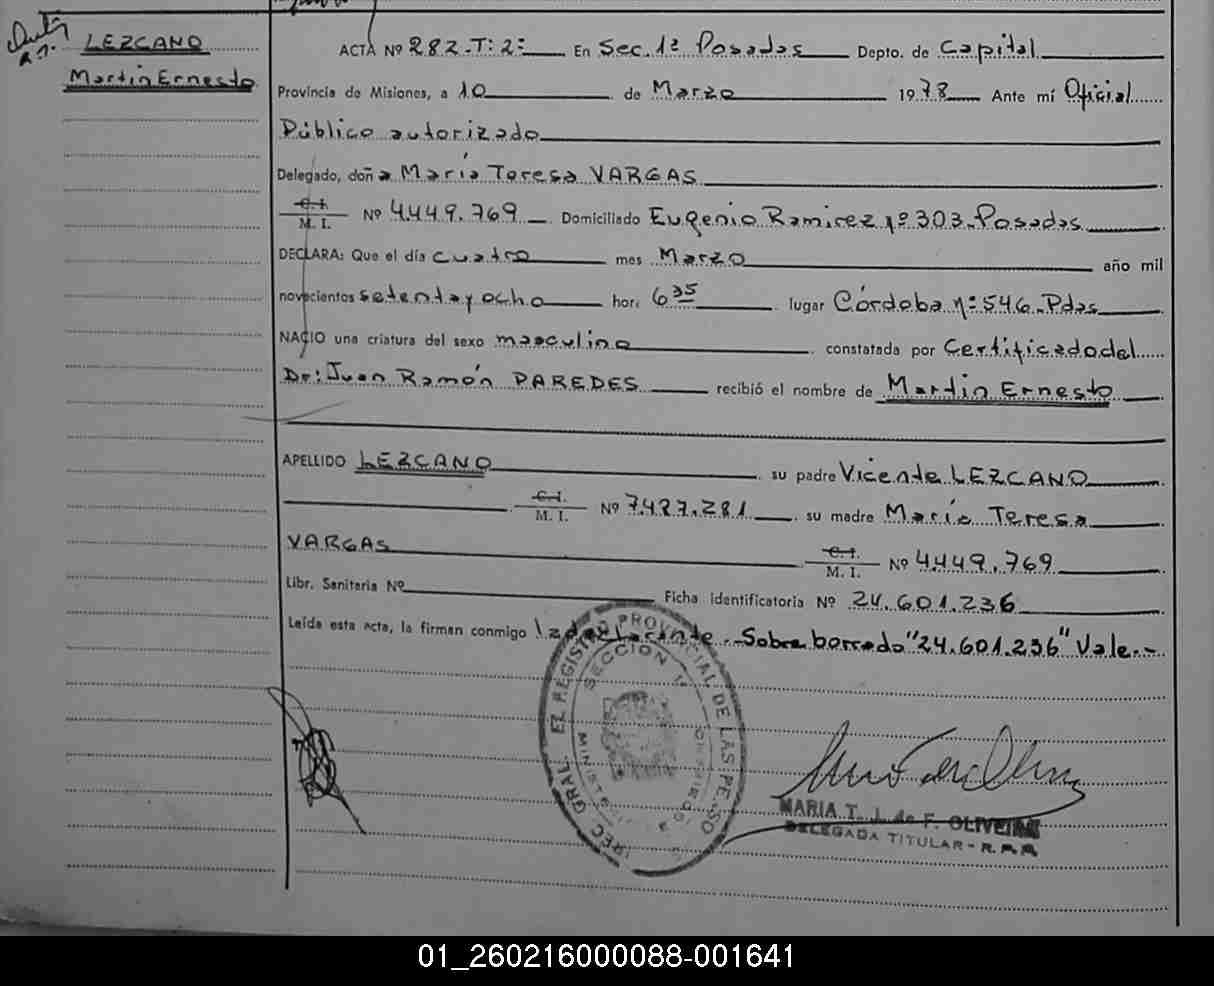 LEZCANO
Martin Ernesto
ACTA Nº 282-T: 2: En Sec. 1ª Posadas Depto. de Capital
Provincia de Misiones, a 10 de Marzo 1978 Ante mí Oficial
Público autorizado
Delegado, doña María Teresa VARGAS
C. I.
M. I. Nº 4.449.769 Domiciliado Eugenio Ramirez nº 303-Posadas
DECLARA: Que el día cuatro mes Marzo año mil
novecientos setenta y ocho hor: 6 35 lugar Córdoba nº 546-Pdas
NACIO una criatura del sexo masculino constatada por Certificado del
Dr: Juan Ramón PAREDES recibió el nombre de Martin Ernesto
APELLIDO LEZCANO su padre Vicente LEZCANO
C. I.
M. I. Nº 7.427.281 su madre María Teresa
VARGAS C. I.
M. I. Nº 4.449.769
Libr. Sanitaria Nº Ficha identificatoria Nº 24.601.236
Leída esta acta, la firman conmigo la declarante.- Sobre borrado "24.601.236" Vale.-
REC. GRAL. EL REGISTRO PROVINCIAL DE LAS PERSO
SECCION 1ª
MARIA T. J. de F. OLIVEIRA
DELEGADA TITULAR - R.P.P.
01_260216000088-001641